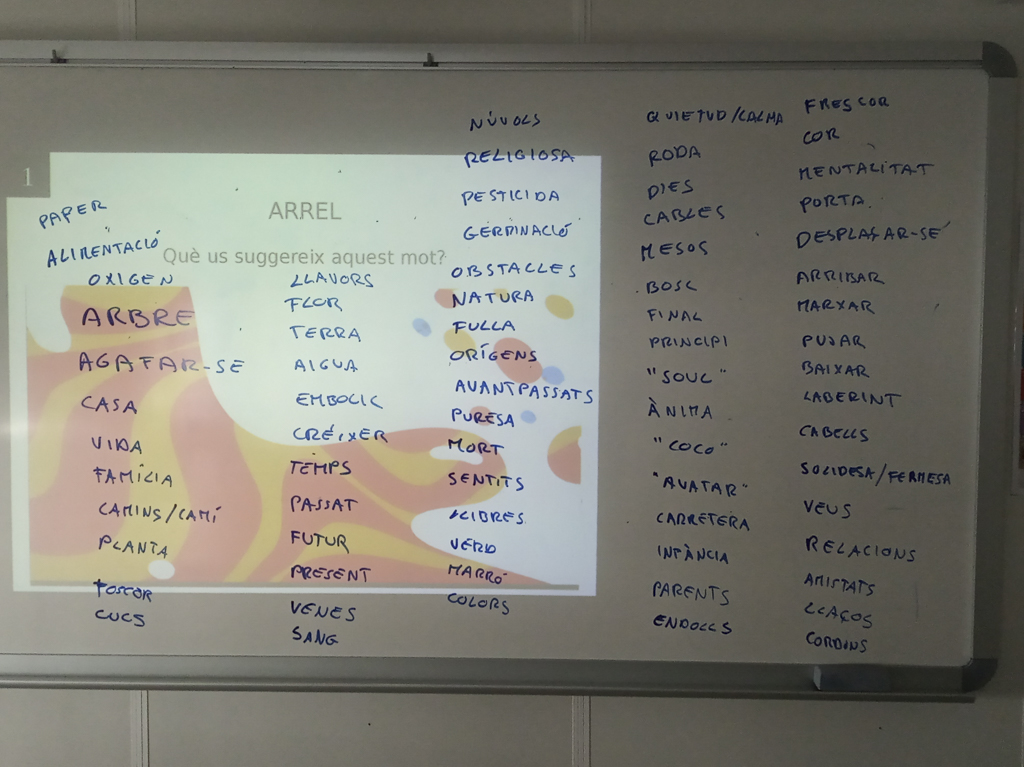 1
ARREL
Què us suggereix aquest mot?
PAPER
ALIMENTACIÓ
OXIGEN
ARBRE
AGAFAR-SE
CASA
VIDA
FAMÍLIA
CAMINS/CAMÍ
PLANTA
FOSCOR
CUCS
LLAVORS
FLOR
TERRA
AIGUA
EMBOLIC
CRÉIXER
TEMPS
PASSAT
FUTUR
PRESENT
VENES
SANG
NÚVOLS
RELIGIOSA
PESTICIDA
GERMINACIÓ
OBSTACLES
NATURA
FULLA
ORÍGENS
AVANTPASSATS
PURESA
MORT
SENTITS
LLIBRES
VERD
MARRÓ
COLORS
QUIETUD/CALMA
RODA
DIES
CABLES
MESOS
BOSC
FINAL
PRINCIPI
"SOUL"
ÀNIMA
"COCO"
"AVATAR"
CARRETERA
INFÀNCIA
PARENTS
ENDOLLS
FRESCOR
COR
MENTALITAT
PORTA
DESPLAÇAR-SE
ARRIBAR
MARXAR
PUJAR
BAIXAR
LABERINT
CABELLS
SOLIDESA/FERMESA
VEUS
RELACIONS
AMISTATS
LLAÇOS
CORDONS